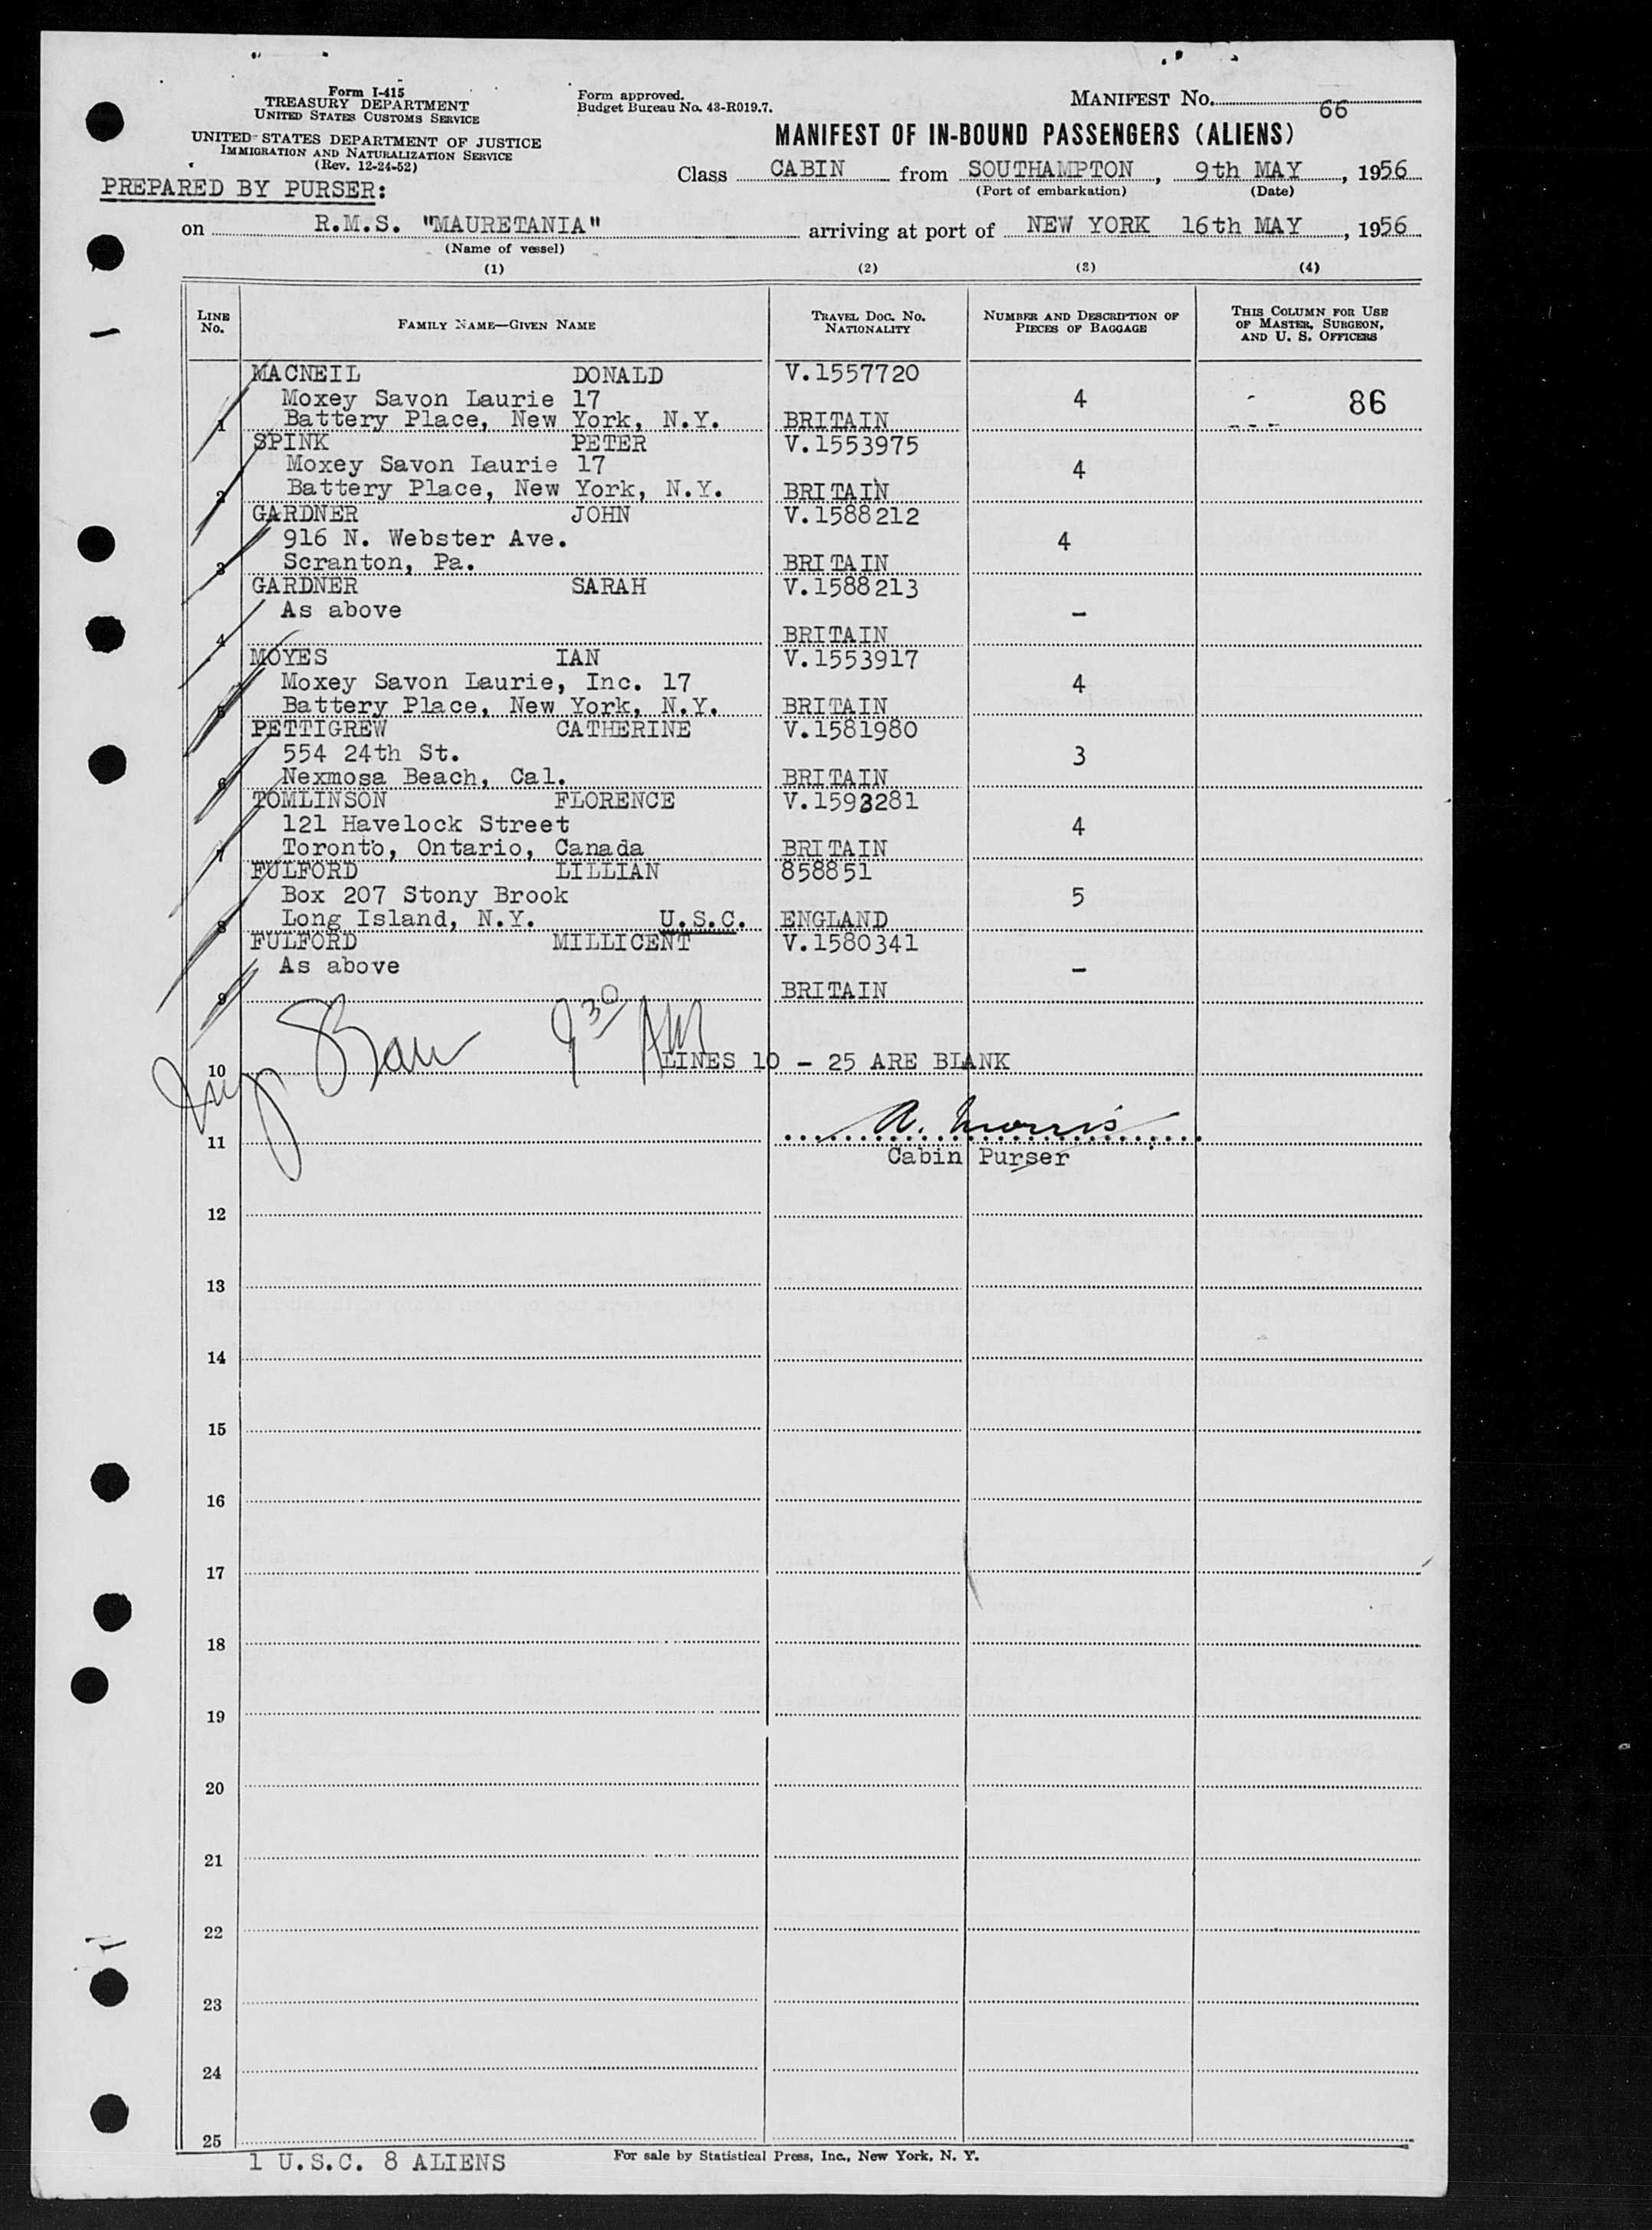 Form I-415
TREASURY DEPARTMENT
UNITED STATES CUSTOMS SERVICE
UNITED STATES DEPARTMENT OF JUSTICE
IMMIGRATION AND NATURALIZATION SERVICE
(Rev. 12-24-52)
PREPARED BY PURSER:
Form approved.
Budget Bureau No. 43-R019.7.
MANIFEST No. 66
MANIFEST OF IN-BOUND PASSENGERS (ALIENS)
Class CABIN from SOUTHAMPTON, 9th MAY, 1956
(Port of embarkation) (Date)
on R.M.S. "MAURETANIA" arriving at port of NEW YORK 16th MAY, 1956
(Name of vessel)
(1) (2) (3) (4)
LINE No. FAMILY NAME—GIVEN NAME TRAVEL DOC. No. NATIONALITY NUMBER AND DESCRIPTION OF PIECES OF BAGGAGE THIS COLUMN FOR USE OF MASTER, SURGEON, AND U. S. OFFICERS
MACNEIL DONALD V.1557720
Moxey Savon Laurie 17 4 86
1 Battery Place, New York, N.Y. BRITAIN
SPINK PETER V.1553975
Moxey Savon Laurie 17 4
2 Battery Place, New York, N.Y. BRITAIN
GARDNER JOHN V.1588212
916 N. Webster Ave. 4
3 Scranton, Pa. BRITAIN
GARDNER SARAH V.1588213
As above –
4 BRITAIN
MOYES IAN V.1553917
Moxey Savon Laurie, Inc. 17 4
5 Battery Place, New York, N.Y. BRITAIN
PETTIGREW CATHERINE V.1581980
554 24th St. 3
6 Nexmosa Beach, Cal. BRITAIN
TOMLINSON FLORENCE V.1593281
121 Havelock Street 4
7 Toronto, Ontario, Canada BRITAIN
FULFORD LILLIAN 858851
Box 207 Stony Brook 5
8 Long Island, N.Y. U.S.C. ENGLAND
FULFORD MILLICENT V.1580341
As above –
9 BRITAIN
9 30 AM
10 LINES 10 - 25 ARE BLANK
A. Morris
11
Cabin Purser
12
13
14
15
16
17
18
19
20
21
22
23
24
25
1 U.S.C. 8 ALIENS
For sale by Statistical Press, Inc., New York, N. Y.